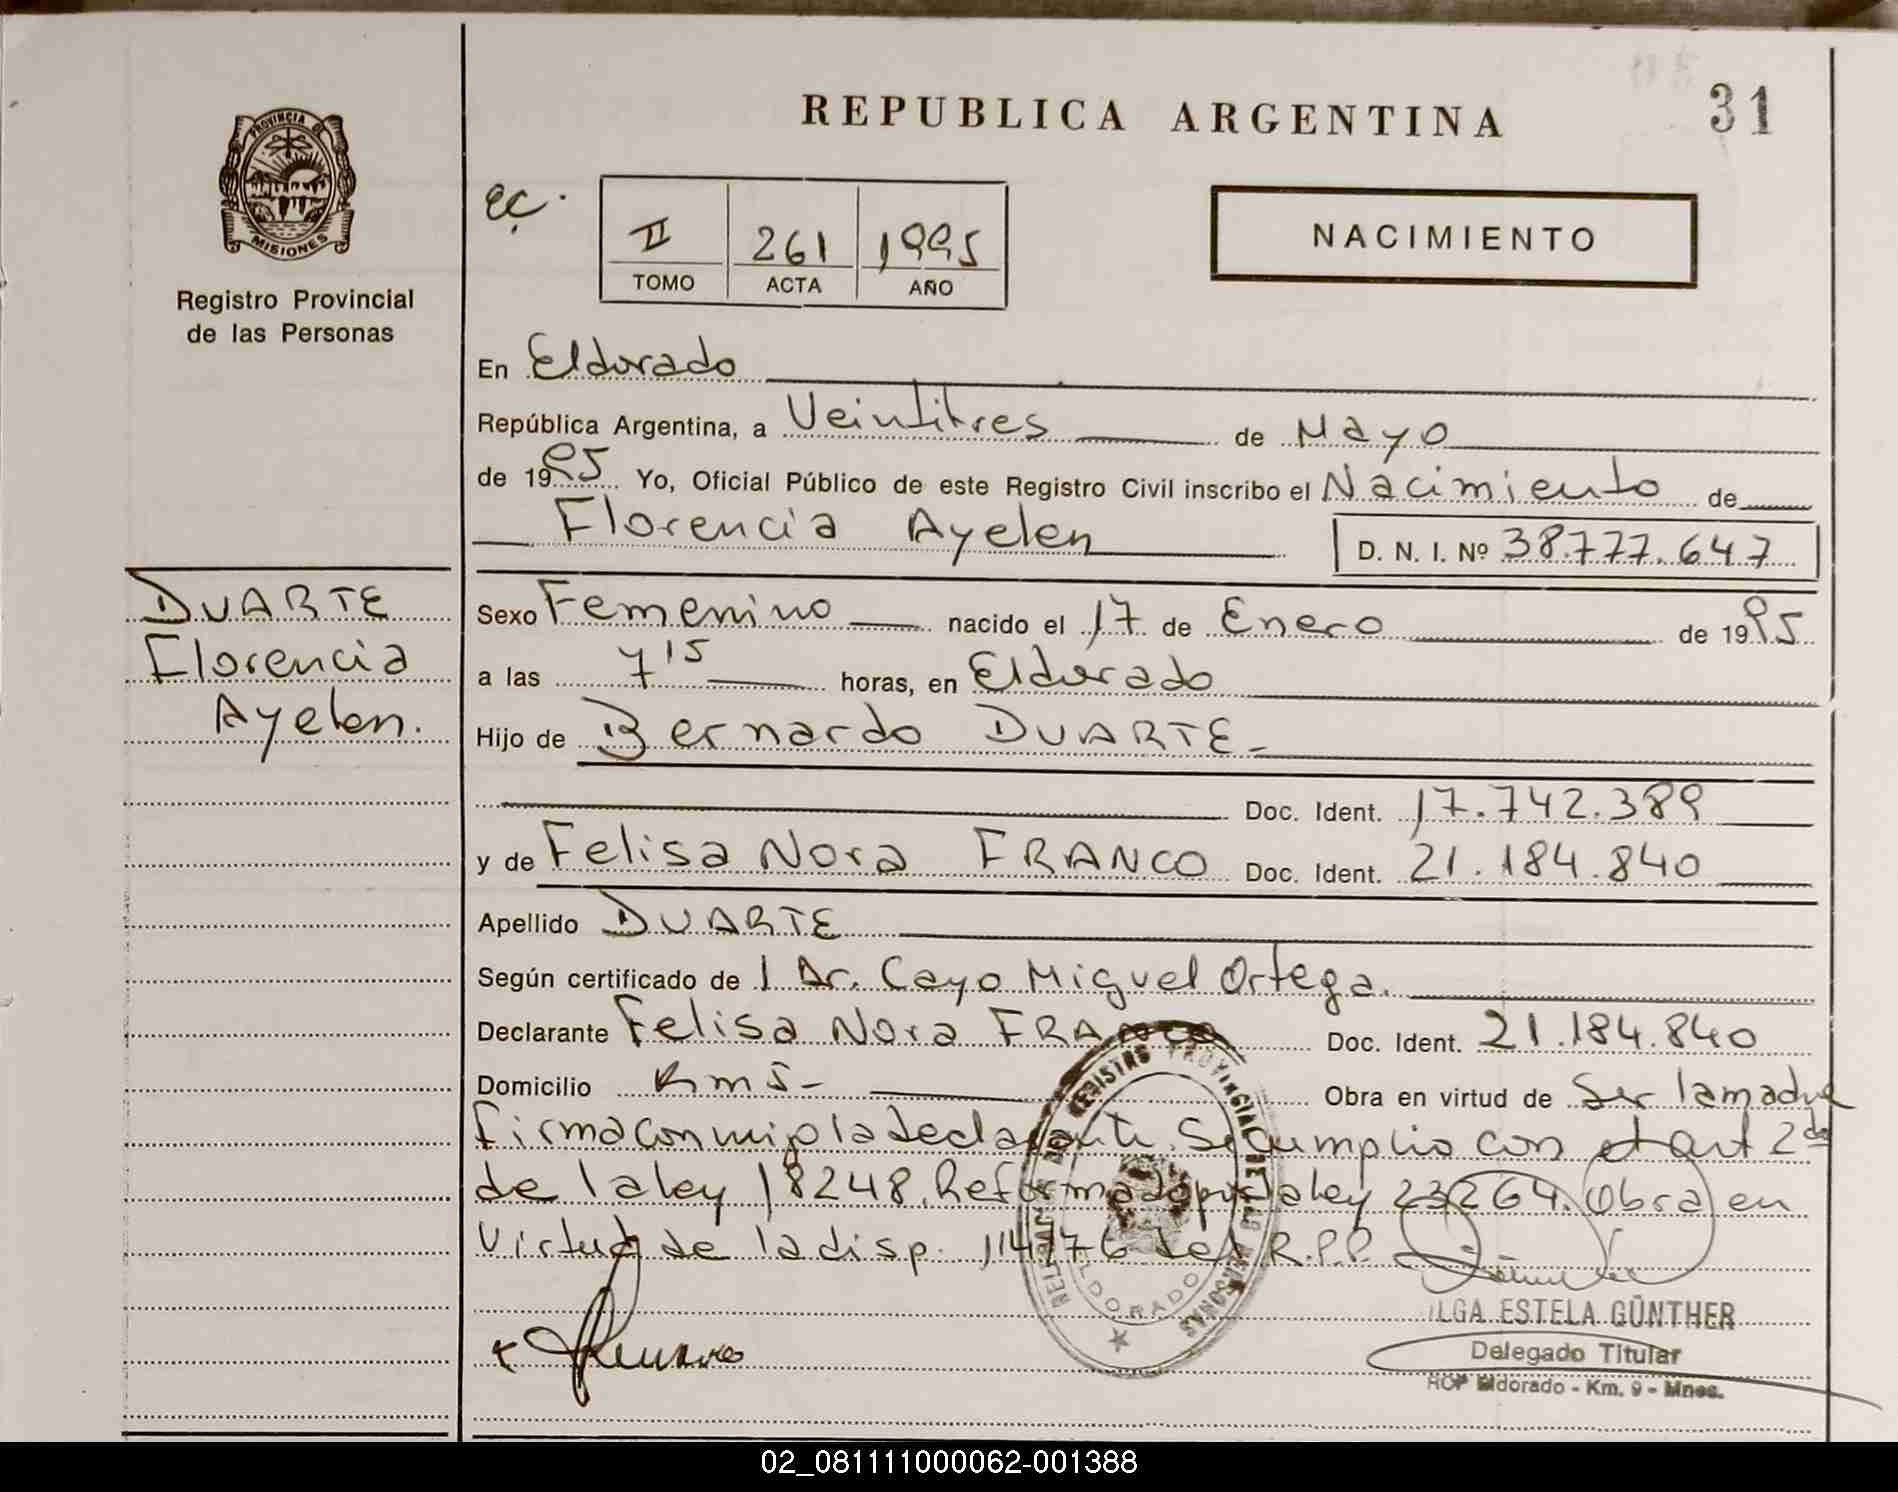 REPUBLICA ARGENTINA
31
PROVINCIA DE
MISIONES
Registro Provincial
de las Personas
ec.
II 261 1995
TOMO ACTA AÑO
NACIMIENTO
En Eldorado
República Argentina, a Veintitres de Mayo
de 1995 Yo, Oficial Público de este Registro Civil inscribo el Nacimiento de
Florencia Ayelen D. N. I. Nº 38.777.647
DUARTE
Florencia
Ayelen.
Sexo Femenino nacido el 17 de Enero de 1995
a las 7 15 horas, en Eldorado
Hijo de Bernardo DUARTE
Doc. Ident. 17.742.389
y de Felisa Nora FRANCO Doc. Ident. 21.184.840
Apellido DUARTE
Según certificado de 1 Dr. Cayo Miguel Ortega.
Declarante Felisa Nora FRANCO Doc. Ident. 21.184.840
Domicilio Km 5- Obra en virtud de Ser la madre
Firma conmigo la declarante. Se cumplio con el art 2do
de la ley 18248. Reformado por la ley 23264. Obra en
Virtud de la disp. 114/76 del R.P.P.
REGISTRO PROVINCIAL DE LAS PERSONAS
ELDORADO
LGA ESTELA GÜNTHER
Delegado Titular
RCP Eldorado - Km. 9 - Mnes.
02_081111000062-001388